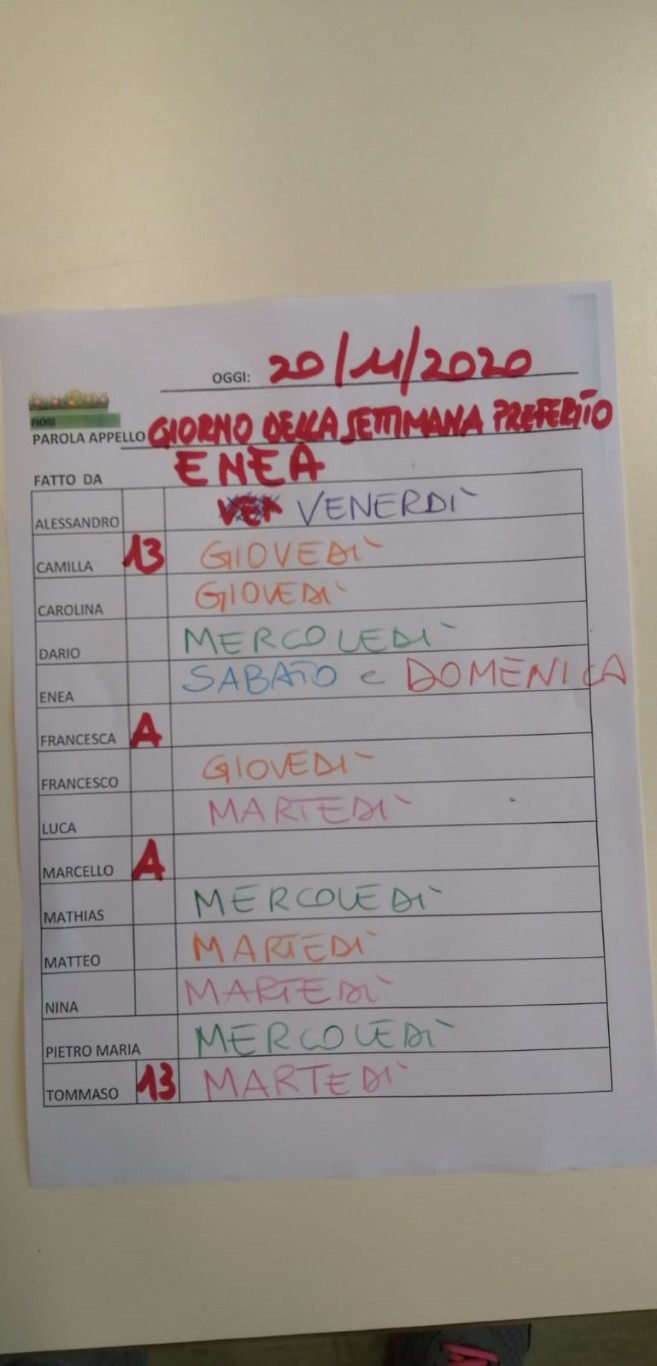 OGGI: 20/11/2020
FIORI
PAROLA APPELLO GIORNO DELLA SETTIMANA PREFERITO
FATTO DA ENEA
ALESSANDRO VENERDÌ
CAMILLA 13 GIOVEDÌ
CAROLINA GIOVEDÌ
DARIO MERCOLEDÌ
ENEA SABATO e DOMENICA
FRANCESCA A
FRANCESCO GIOVEDÌ
LUCA MARTEDÌ
MARCELLO A
MATHIAS MERCOLEDÌ
MATTEO MARTEDÌ
NINA MARTEDÌ
PIETRO MARIA MERCOLEDÌ
TOMMASO 13 MARTEDÌ